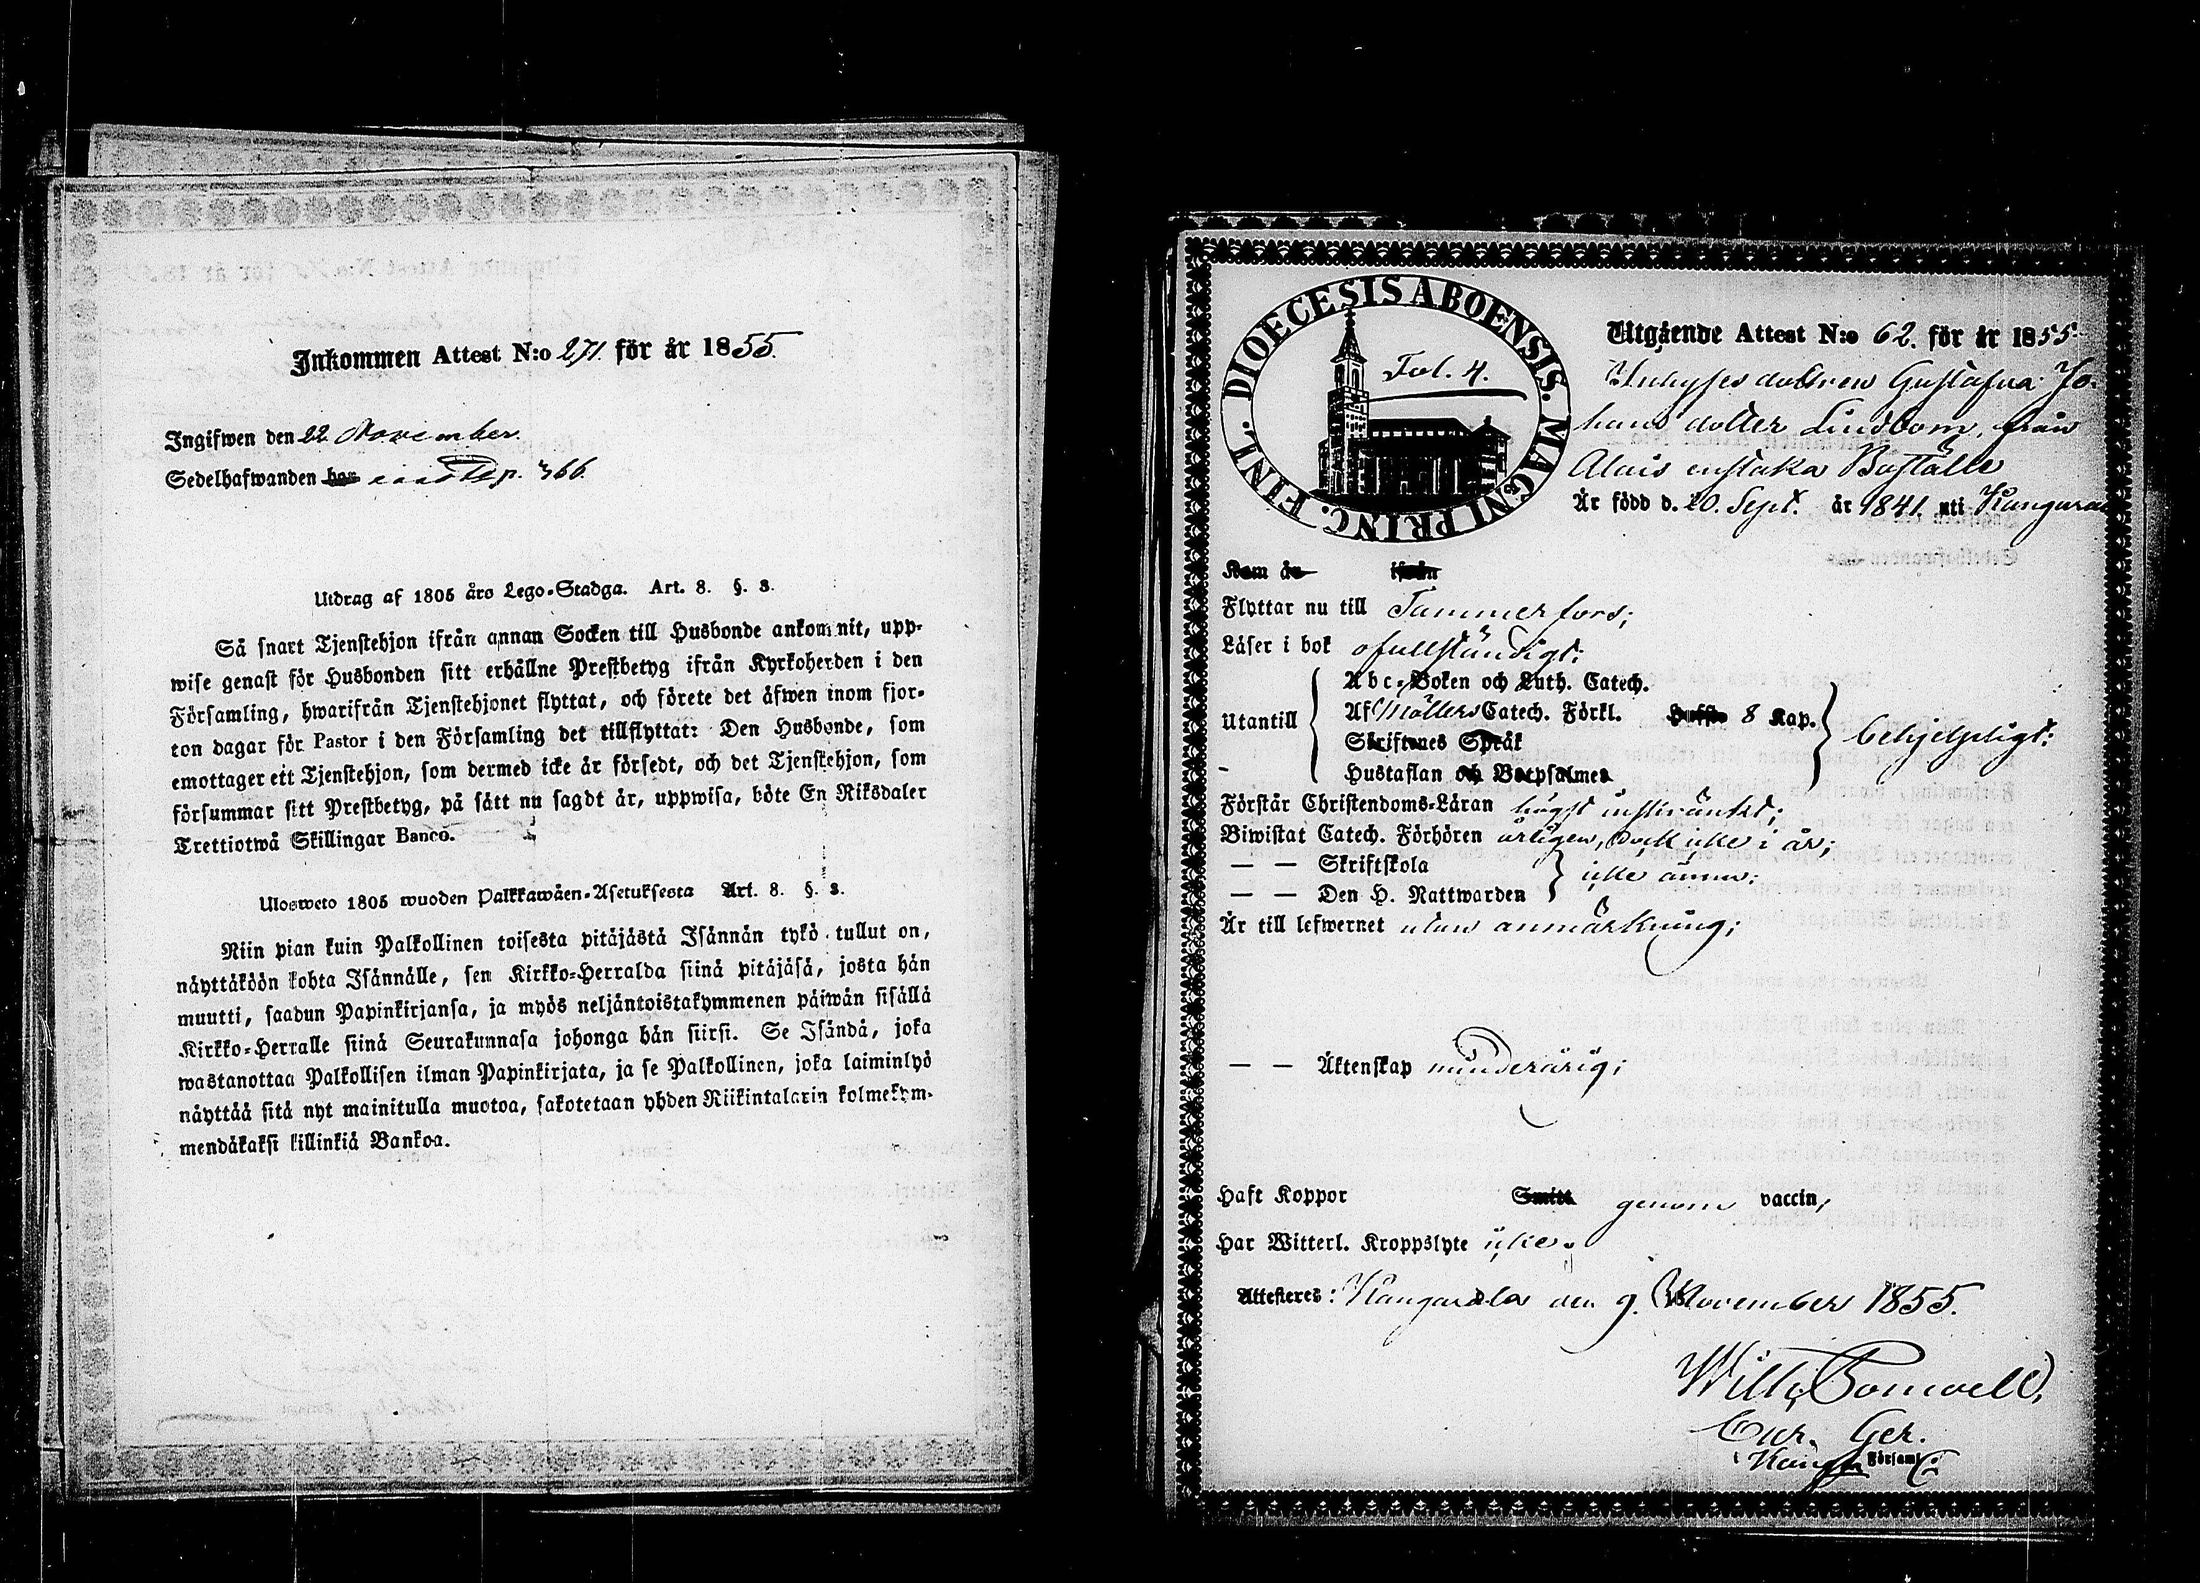 Inkommen Attest N:o 271. för år 1855.
Ingifwen den 22 November
Sedelhafwanden har pag. 366.
Utdrag af 1805 års Lego-Stadga. Art. 8. §. 3.
Så snart Tjenstehjon ifrån annan Socken till Husbonde ankommit, upp-
wise genast för Husbonden sitt erhållne Prestbetyg ifrån Kyrkoherden i den
Församling, hwarifrån Tjenstehjonet flyttat, och förete det äfwen inom fjor-
ton dagar för Pastor i den Församling det tillflyttat: Den Husbonde, som
emottager ett Tjenstehjon, som dermed icke är försedt, och det Tjenstehjon, som
försummar sitt Prestbetyg, på sätt nu sagdt är, uppwisa, böte En Riksdaler
Trettiotwå Skillingar Banco.
Ulosweto 1805 wuoden Palkkawäen-Asetuksesta Art. 8. §. 3.
Niin pian kuin Palkollinen toisesta pitäjästä Isännän tykö tullut on,
näyttäköön kohta Isännälle, sen Kirkko-Herralda siinä pitäjäsä, josta hän
muutti, saadun Papinkirjansa, ja myös neljäntoistakymmenen päiwän sisällä
Kirkko-Herralle siinä Seurakunnasa johonga hän siirsi. Se Isändä, joka
wastanottaa Palkollisen ilman Papinkirjata, ja se Palkollinen, joka laiminlyö
näyttää sitä nyt mainitulla muotoa, sakotetaan yhden Riikintalarin kolmekym-
mendäkaksi killinkiä Bankoa.
DIOECESIS ABOENSIS. MAGNI PRINC. FINL.
Fol. 4.
Utgående Attest N:o 62. för år 1855.
Inhyses dottren Gustafva Jo-
hans dotter Lindbom, från
Alais enstaka Boställe
Är född d. 20. Sept. år 1841. uti Kangasa
Kom år ifrån
Flyttar nu till Tammerfors;
Läser i bok ofullständigt;
Utantill
Abc-Boken och Luth. Catech.
Af Möllers Catech. Förkl. 8 Kap.
Skriftenes Språk
Hustaflan och Botpsalmer
behjelpligt;
Förstår Christendoms-Läran högst inskränkt;
Biwistat Catech. Förhören årligen, dock icke i år;
— — Skriftskola
— — Den H. Nattwarden
icke ännu;
Är till lefwernet utan anmärkning;
— — Äktenskap minderårig;
Haft Koppor genom vaccin,
Har Witterl. Kroppslyte icke.
Attesteres: Kangasala den 9. November 1855.
Cur. Ger.
i Församl: